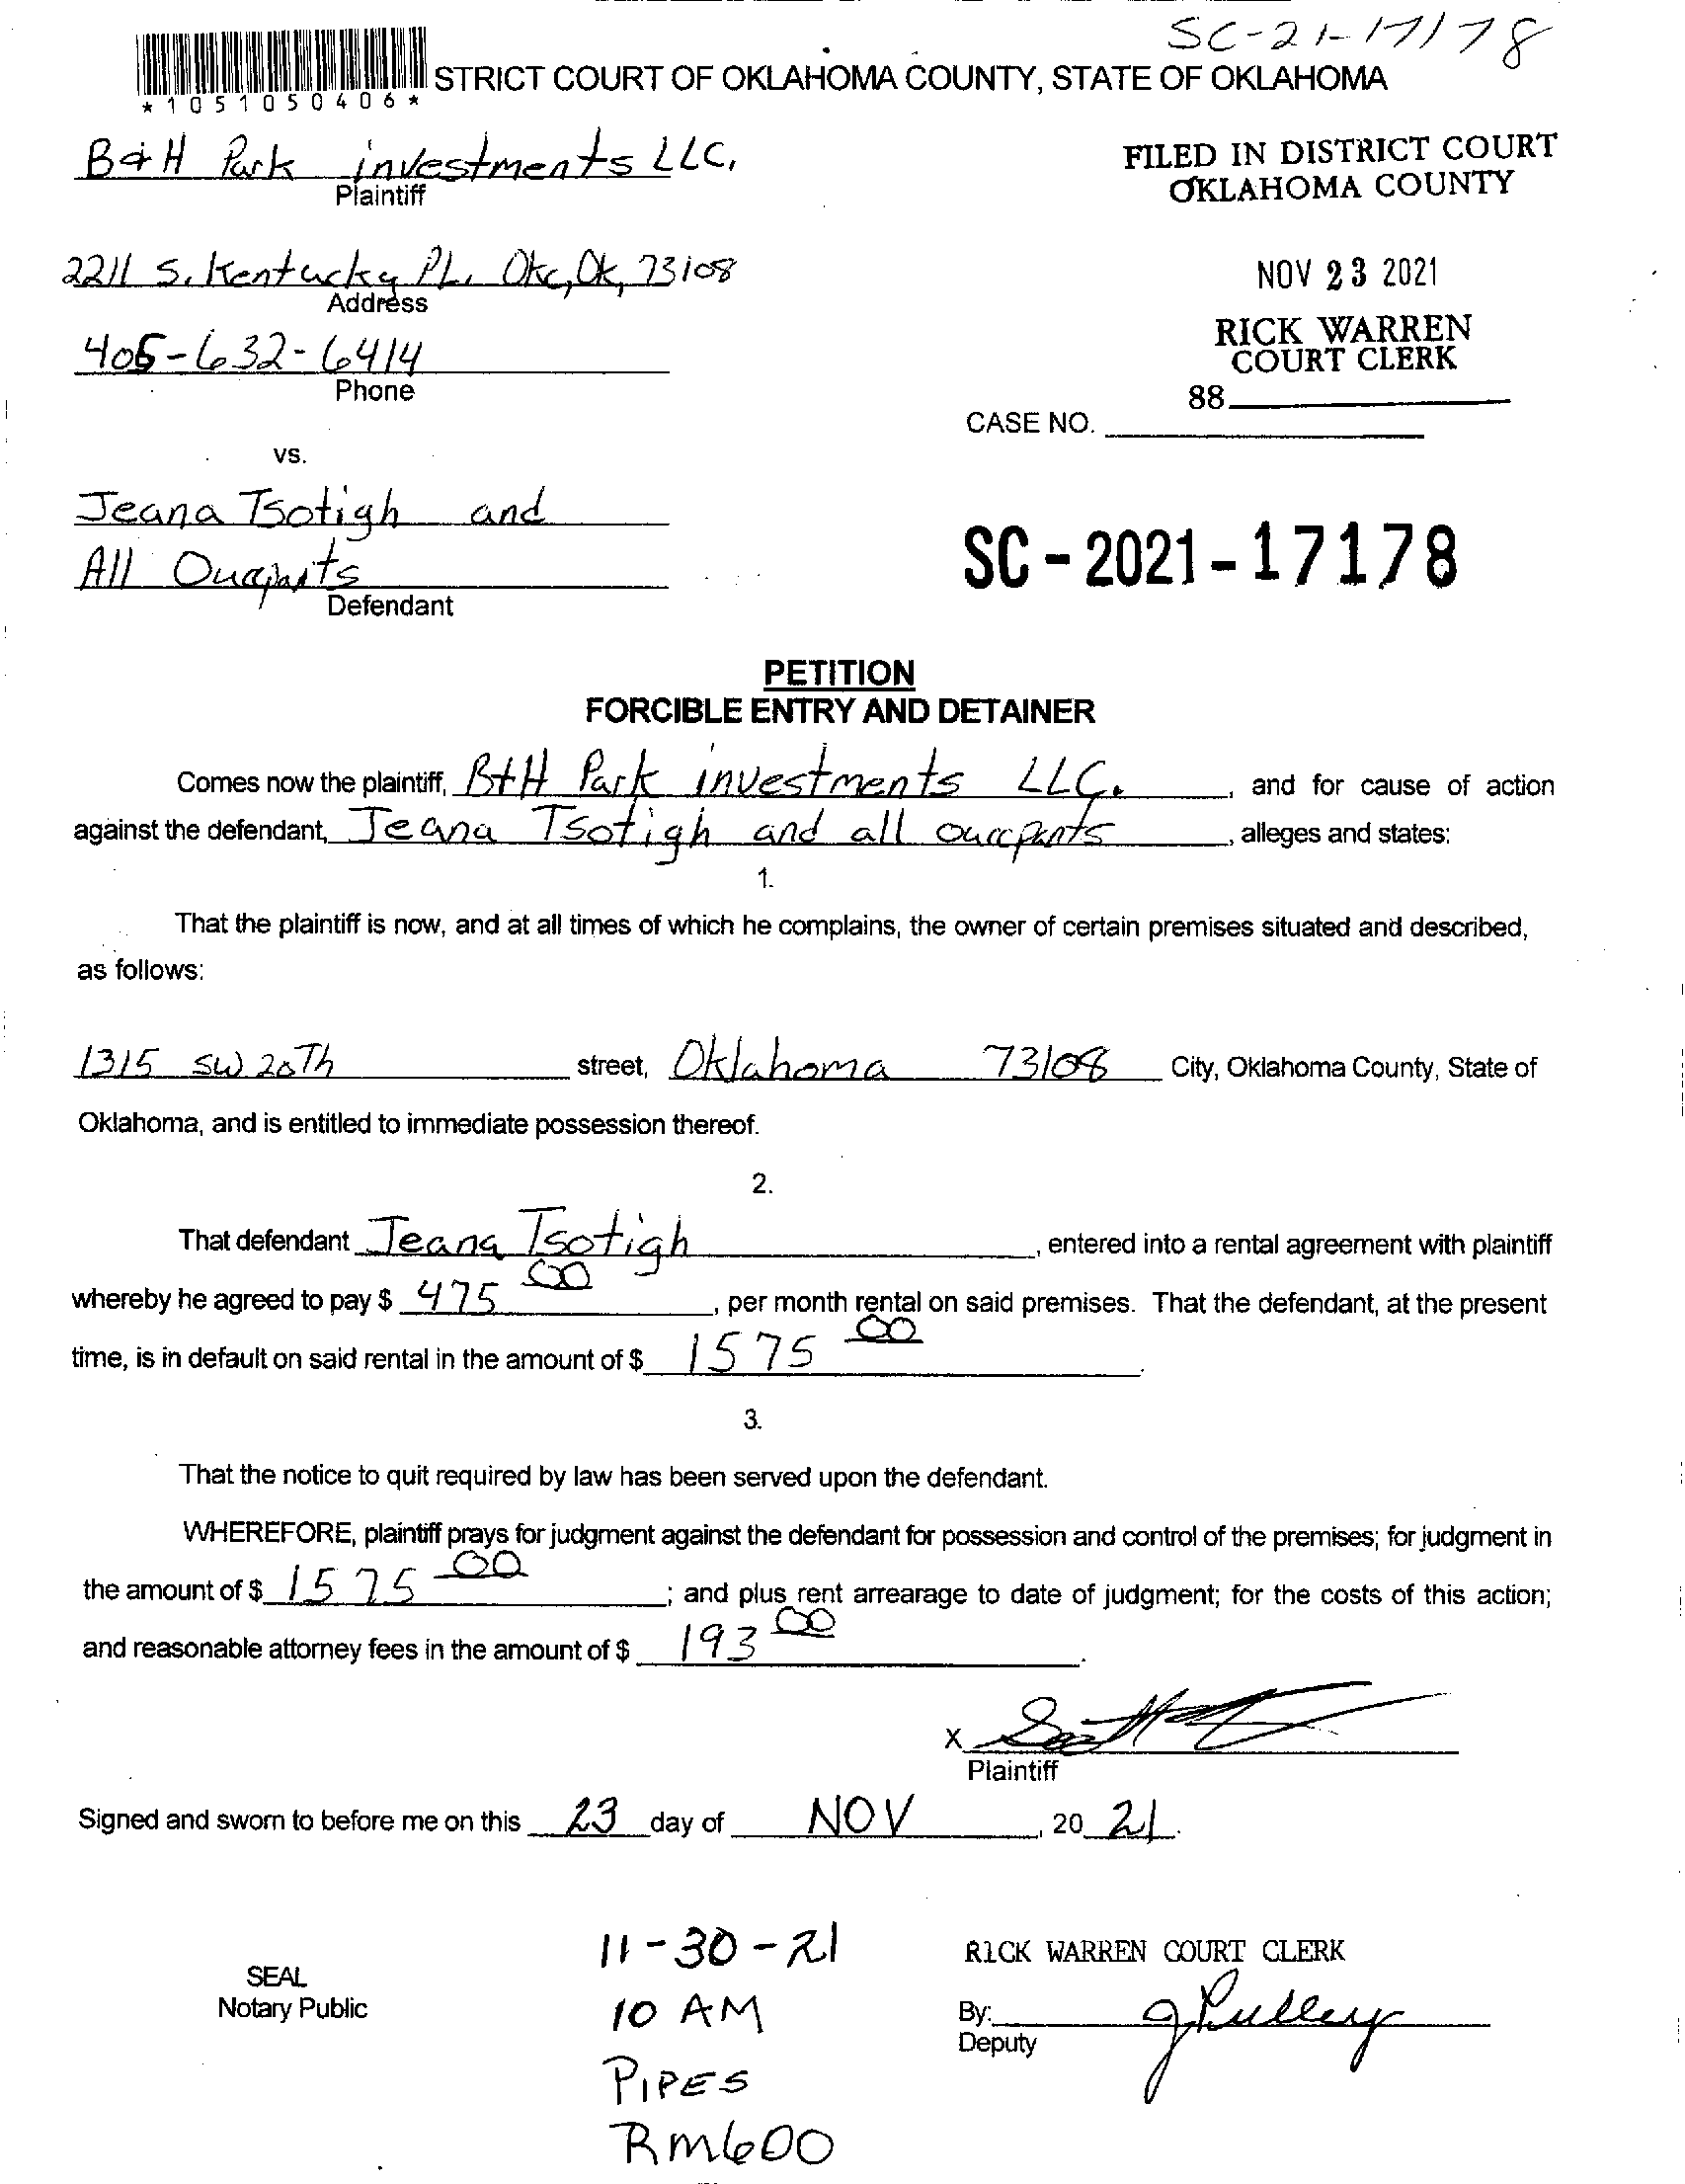 SC-21-17178
STRICT COURT OF OKLAHOMA COUNTY, STATE OF OKLAHOMA
*1051050406*
B&H Park investments LLC,
Plaintiff
FILED IN DISTRICT COURT
OKLAHOMA COUNTY
2211 S. Kentucky PL. Okc, Ok, 73108
Address
NOV 23 2021
405-632-6414
Phone
RICK WARREN
COURT CLERK
88
CASE NO.
vs.
Jeana Tsotigh and
All
Defendant
SC-2021-17178
PETITION
FORCIBLE ENTRY AND DETAINER
Comes now the plaintiff, B+H Park investments LLC. , and for cause of action
against the defendant, Jeana Tsotigh and all , alleges and states:
1.
That the plaintiff is now, and at all times of which he complains, the owner of certain premises situated and described,
as follows:
1315 SW 20Th street, Oklahoma 73108 City, Oklahoma County, State of
Oklahoma, and is entitled to immediate possession thereof.
2.
That defendant Jeana Tsotigh , entered into a rental agreement with plaintiff
whereby he agreed to pay $ 475 00 , per month rental on said premises. That the defendant, at the present
time, is in default on said rental in the amount of $ 1575 00 .
3.
That the notice to quit required by law has been served upon the defendant.
WHEREFORE, plaintiff prays for judgment against the defendant for possession and control of the premises; for judgment in
the amount of $ 1575 00 ; and plus rent arrearage to date of judgment; for the costs of this action;
and reasonable attorney fees in the amount of $ 193 00 .
X
Plaintiff
Signed and sworn to before me on this 23 day of NOV , 20 21.
SEAL
Notary Public
11-30-21
10 AM
PIPES
RM600
RICK WARREN COURT CLERK
By: J Pulley
Deputy